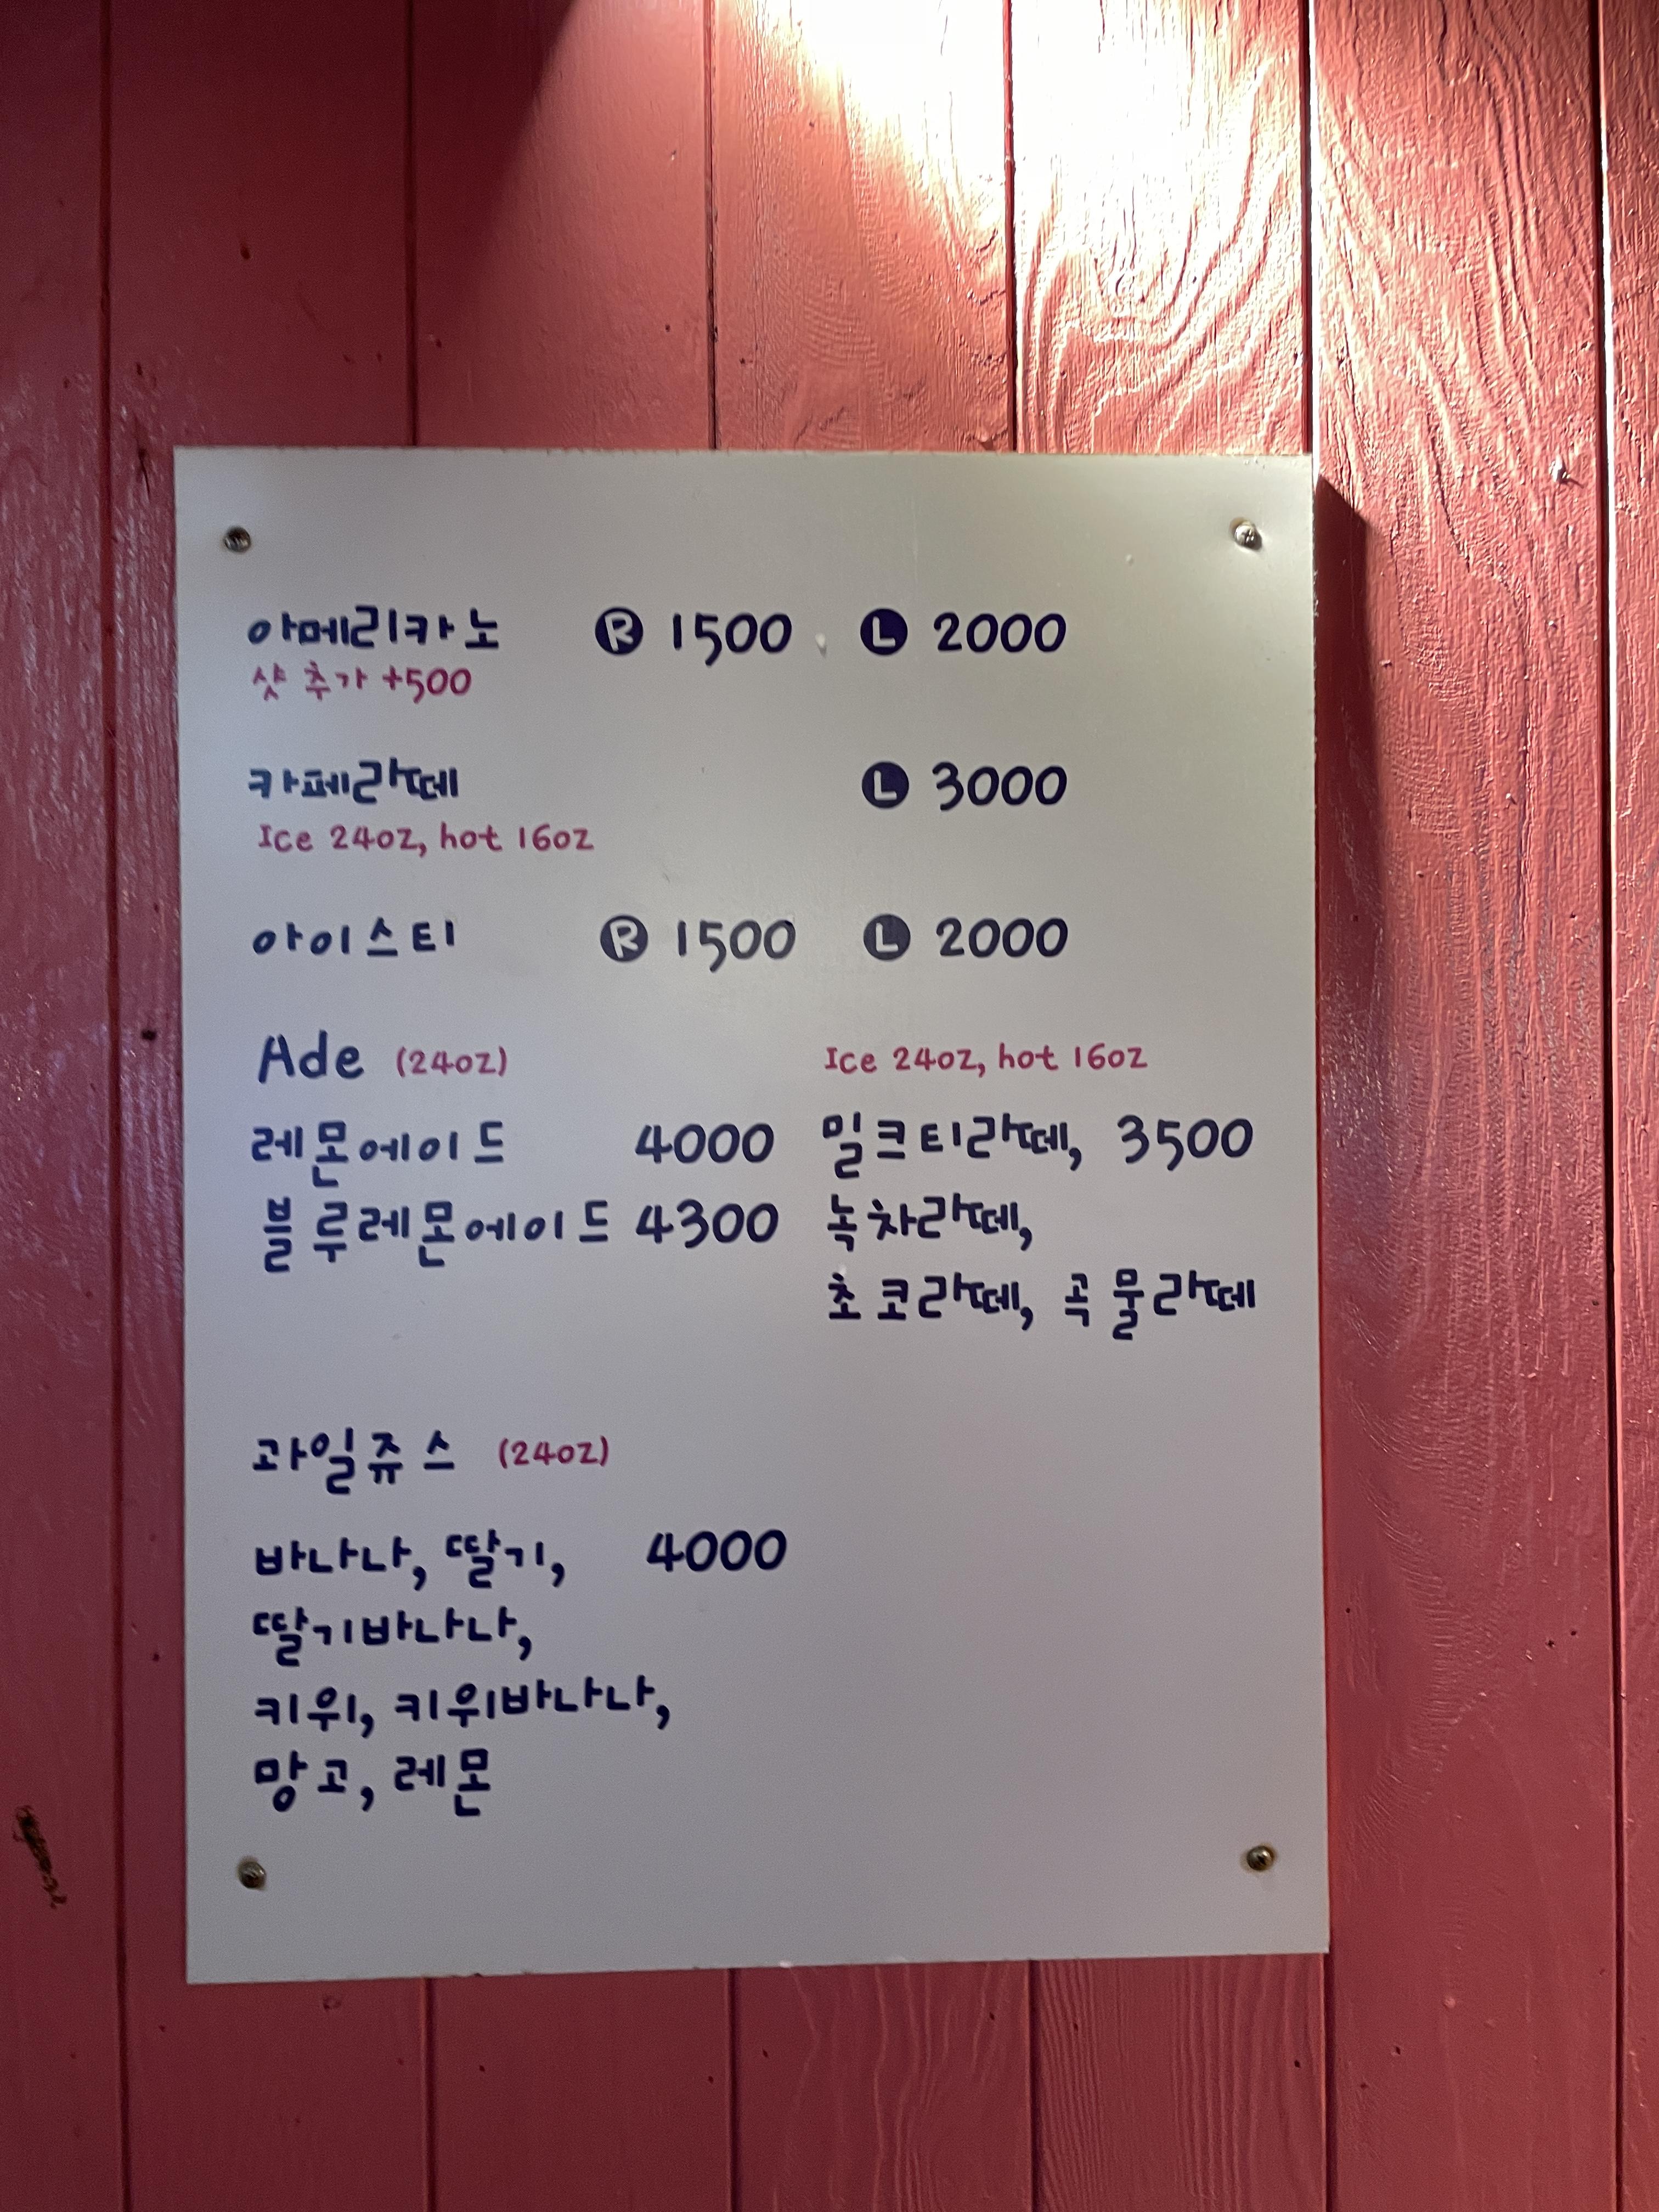 아메리카노 R 1500 L 2000
샷 추가 +500
카페라떼 L 3000
Ice 24oz, hot 16oz
아이스티 R 1500 L 2000
Ade (24oz)
레몬에이드 4000
블루레몬에이드 4300
Ice 24oz, hot 16oz
밀크티라떼, 3500
녹차라떼,
초코라떼, 곡물라떼
과일쥬스 (24oz)
바나나, 딸기, 4000
딸기바나나,
키위, 키위바나나,
망고, 레몬